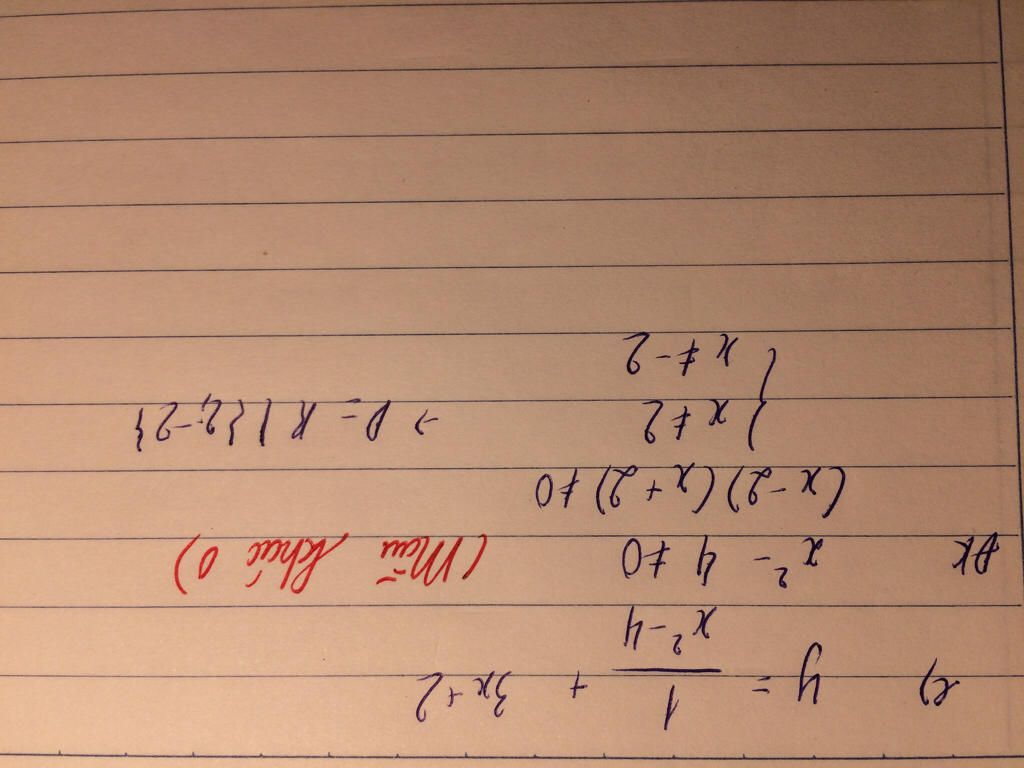 c) y = 1/(x² - 4) + 3x + 2
ĐK x² - 4 ≠ 0 (Mẫu khác 0)
(x - 2)(x + 2) ≠ 0
{ x ≠ 2 → D = R \ {2; -2}
{ x ≠ -2